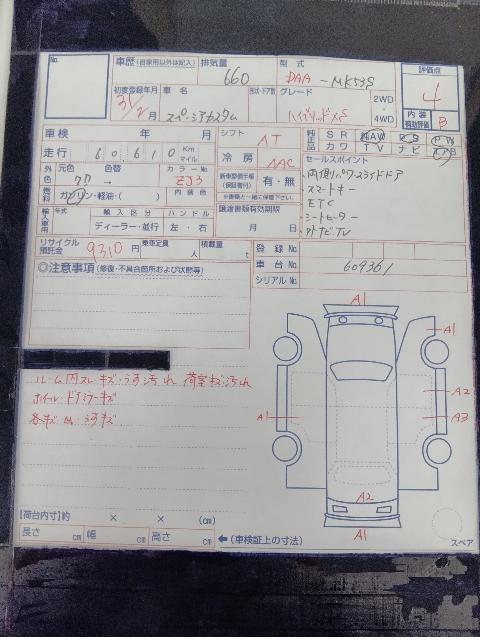 No.
車歴(自家用以外は記入)
排気量
660
型式
DAA-MK53S
評価点
4
初度登録年月
31/2月
車名
スペーシアカスタム
形状・ドア数
グレード
ハイブリッドXS
2WD
・
4WD
内装
補助評価
B
車検 年 月
シフト
AT
純正品
SR 純AW PS PW
カワ TV ナビ エアB
走行
60,610
Km
マイル
冷房
AAC
セールスポイント
・両側パワースライドドア
・スマートキー
・ETC
・シートヒーター
・ナビTV
外色
元色
クロ
色替
→
カラーNo
ZJ3
燃料
ガソリン・軽油・( )
内装色
新車整備手帳
(保証書付)
有・無
※書類と一緒に保管下さい。
輸入車用
年式
輸入区分
ディーラー・並行
ハンドル
左・右
譲渡書類有効期限
月 日
リサイクル
預託金
9310円
乗車定員
人
積載量
t
登録No
車台No
609361
シリアルNo
◎注意事項(修復・不具合箇所および状態等)
ルーム内スレ キズ・うす汚れ 荷室キズ汚れ
ホイール・ドアミラーキズ
各キズ 凹・うすキズ
A1
A1
A2
A3
A1
A2
A1
【荷台内寸】約 × × (cm)
長さ cm 幅 cm 高さ cm
←(車検証上の寸法)
スペア